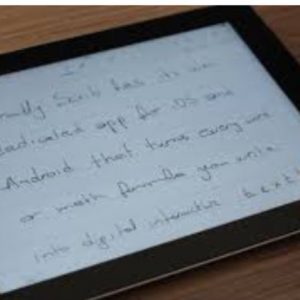 has its own
dedicated app for iOS and
Android that turns every word
or math formula you write
into digital interactive text